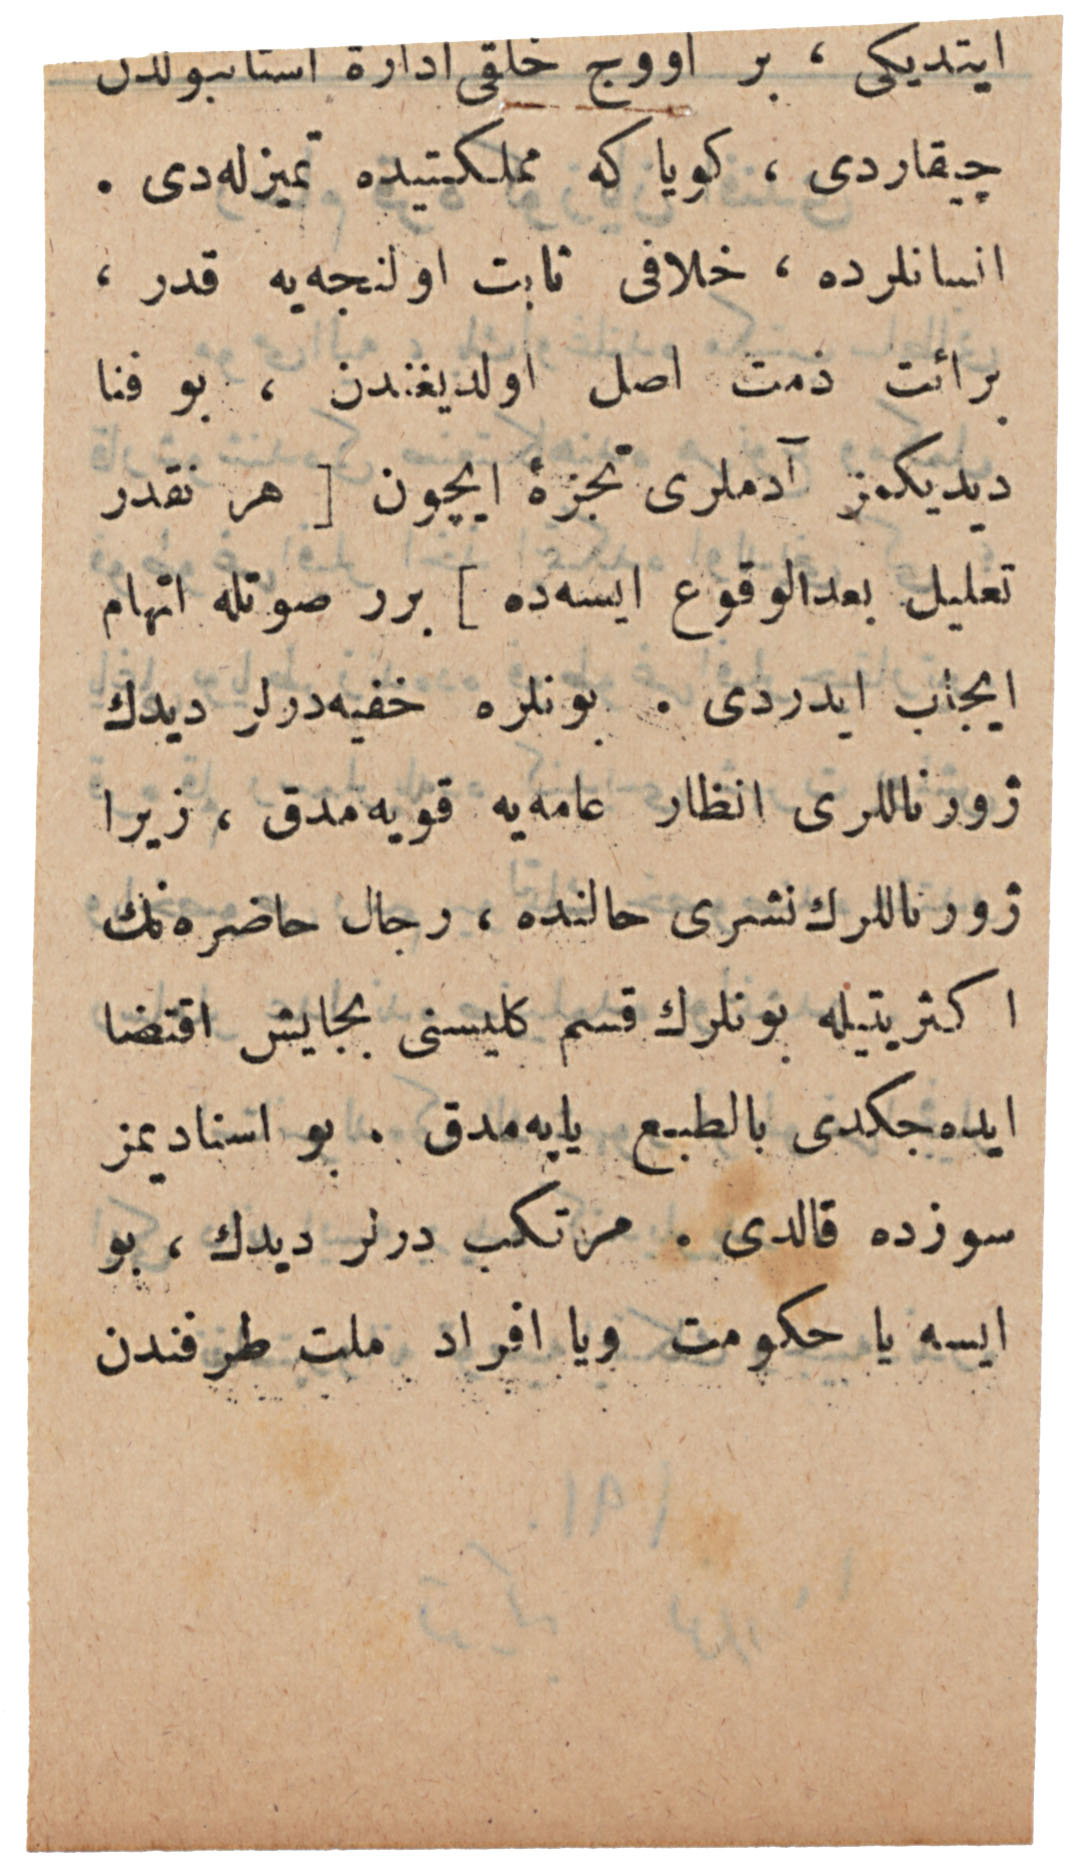 ايتديكى ، بر اووج خلقى ادارةً استانبولدن
چيقاردى ، كويا كه مملكتيده تميزله‌دى .
انسانلرده ، خلافى ثابت اولنجه‌يه قدر ،
برائت ذمت اصل اولديغندن ، بو فنا
ديديكمز آدملرى تجزۀ ايچون [ هر نقدر
تعليل بعدالوقوع ايسه‌ده ] برر صوتله اتهام
ايجاب ايدردى . بونلره خفيه‌درلر ديدك
ژورناللرى انظار عامه‌يه قويه‌مدق ، زيرا
ژورناللرك نشرى حالنده ، رجال حاضره‌نك
اكثريتيله بونلرك قسم كليسنى بجايش اقتضا
ايده‌جكدى بالطبع ياپه‌مدق . بو اسناديمز
سوزده قالدى . مرتكب درلر ديدك ، بو
ايسه يا حكومت ويا افراد ملت طرفندن